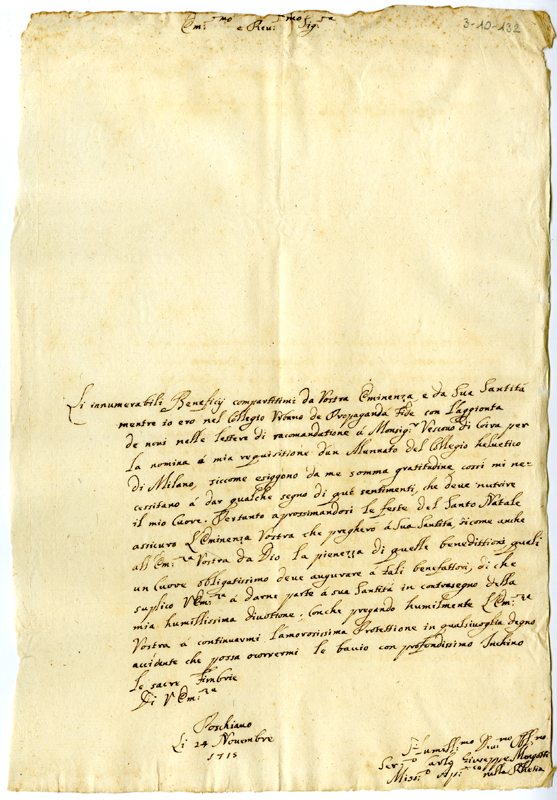 3-10-132
Em:mo e Reu:mo Sig:re
Li innumerabili Beneficij compartitimi da Vostra Eminenza, e da Sua Santità
mentre io ero nel Collegio Urbano de Propaganda Fide con l'aggionta
de novi nelle lettere di racomandatione à Monsig:r Vescovo di Coira per
la nomina à mia requisitione d'un Alunnato del Collegio helvetico
di Milano, siccome esiggono da me somma gratitudine, cossì mi ne-
cessitano à dar qualche segno di que sentimenti, che deve nutrire
il mio Cuore. Pertanto aprossimandosi le feste del Santo Natale
assicuro L'Eminenza Vostra che pregherò à Sua Santità, sicome anche
all'Em:za Vostra da Dio la pienezza di quelle benedittioni, quali
un Cuore obligatissimo deve augurare à tali benefattori, di che
suplico V Em:za à darne parte à sua Santità in contrasegno della
mia humilissima divotione. Con che pregando humilmente L'Em:za
Vostra à continuarmi l'amorosissima Protettione in qualsivoglia degno
accidente che possa ocorrermi le bacio con profondissimo Inchino
le sacre Fimbrie
Di V Em:za
Poschiavo
Li 24 Novembre
1715
Humiliss:mo Devo:mo
Ser:re Carlo Giuseppe
Miss:o Ap:co nella Rhetia